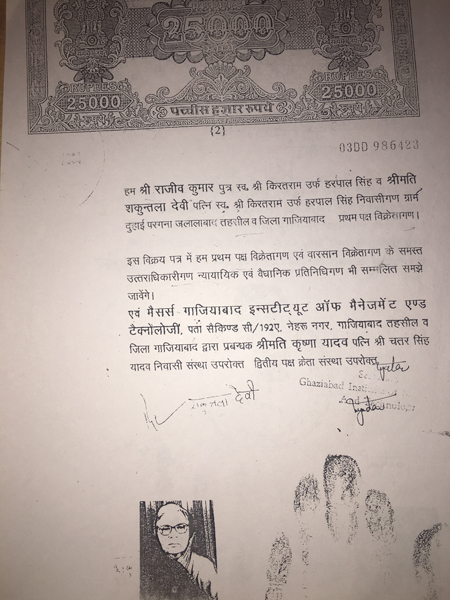 25000
RUPEES
RUPEES
25000
पच्चीस हजार रूपये
25000
{2}
03DD 986423
हम श्री राजीव कुमार पुत्र स्व. श्री किरतराम उर्फ हरपाल सिंह व श्रीमति
शकुन्तला देवी पत्नि स्व. श्री किरतराम उर्फ हरपाल सिंह निवासीगण ग्राम
दुहाई परगना जलालाबाद तहसील व जिला गाजियाबाद प्रथम पक्ष विक्रेतागण।
इस विक्रय पत्र में हम प्रथम पक्ष विक्रेतागण एवं वारसान विक्रेतागण के समस्त
उत्तराधिकारीगण न्यायायिक एवं वैधानिक प्रतिनिधिगण भी सम्मलित समझे
जावेंगे।
एवं मैसर्स गाजियाबाद इन्सटीट्यूट ऑफ मैनेजमेंट एण्ड
टैक्नोलॉजी, पता सैकिण्ड सी/192ए, नेहरू नगर, गाजियाबाद तहसील व
जिला गाजियाबाद द्वारा प्रबन्धक श्रीमति कृष्णा यादव पत्नि श्री चतर सिंह
यादव निवासी संस्था उपरोक्त द्वितीय पक्ष क्रेता संस्था उपरोक्त
शकुन्तला देवी
Ghaziabad